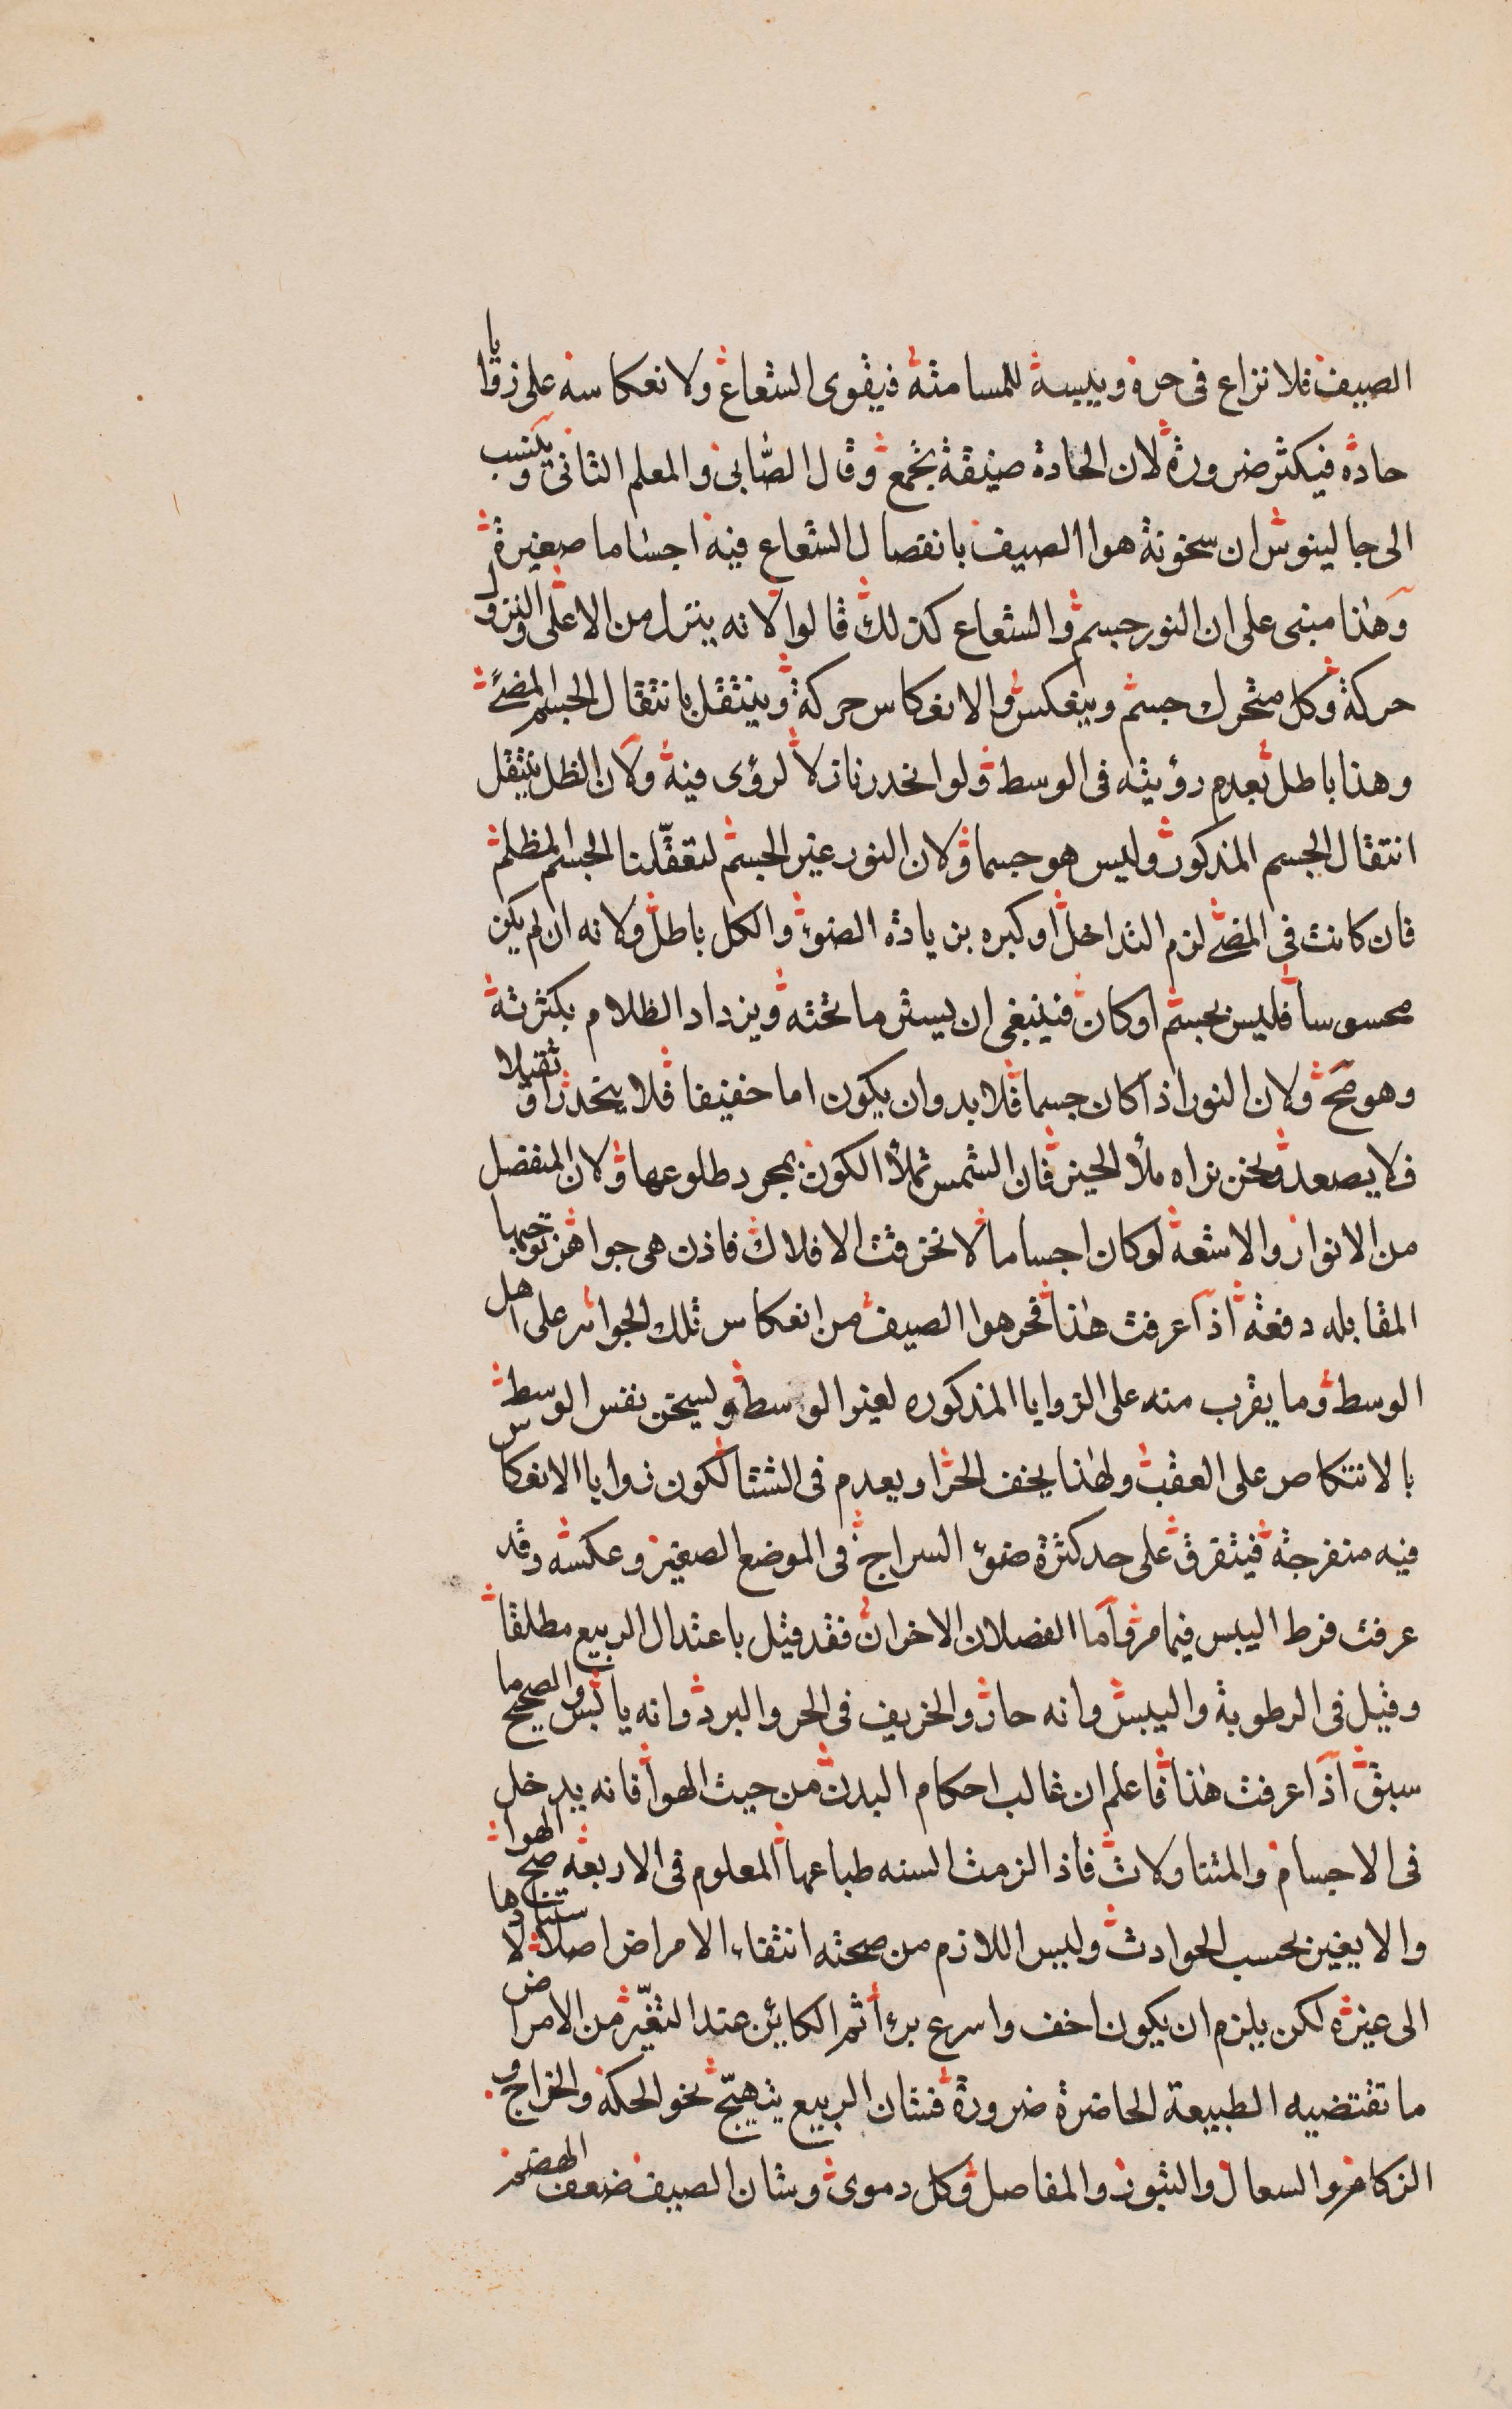 الصيف فلا نزاع فى حره ويبسه للمسامتة فيقوى الشعاع ولانعكاسه على زوايا
حاده فيكثر ضرورة لان الحادة ضيقة تجمع وقال الصابى والمعلم الثانى وينسب
الى جالينوس ان سخونة هوا الصيف بانفصال الشعاع فيه اجساما صغيرة
وهذا مبنى على ان النور جسم والشعاع كذلك قالوا لانه ينزل من الاعلى والنزول
حركة وكل متحرك جسم وينعكس والانعكاس حركة وينتقل بانتقال الجسم المضئ
وهذا باطل بعدم رؤيته فى الوسط ولو انحدر نازلا لرؤى فيه ولان الظل ينتقل
انتقال الجسم المذكور وليس هو جسما ولان النور غير الجسم لتعقلنا الجسم المظلم
فان كانت فى المضئ لزم التداخل او كبره بزيادة الضوء والكل باطل ولانه ان لم يكن
محسوسا فليس بجسم او كان فينبغى ان يستر ما تحته ويزداد الظلام بكثرته
وهو مح ولان النور اذا كان جسما فلا بد وان يكون اما خفيفا فلا ينحدر او ثقيلا
فلا يصعد ونحن نراه ملأ الحيز فان الشمس تملأ الكون بمجرد طلوعها ولان المنفصل
من الانوار والاشعة لو كان اجساما لانخرقت الافلاك فاذن هى جواهر توجبها
المقابله دفعة اذا عرفت هذا فحر هوا الصيف من انعكاس تلك الجواهر على اهل
الوسط وما يقرب منه على الزوايا المذكوره لغير الوسط ولسيخن نفس الوسط
بالانتكاص على العقب ولهذا يخف الحر او يعدم فى الشتا لكون زوايا الانعكاس
فيه منفرجة فيتفرق على حد كثرة ضوء السراج فى الموضع الصغير وعكسه وقد
عرفت فرط اليبس فيما مر واما الفضلان الاخران فقد قيل باعتدال الربيع مطلقا
وقيل فى الرطوبة واليبس وانه حار والخريف فى الحر والبرد وانه يابس والصحيح ما
سبق اذا عرفت هذا فاعلم ان غالب احكام البدن من حيث الهوا فانه يدخل
فى الاجسام والمتناولات فاذا لزمت السنه طباعها المعلوم فى الاربعة صح الهوا
والا يغير بحسب الحوادث وليس اللازم من صحته انتفاء الامراض اصلا لاستنادها
الى غيره لكن يلزم ان يكون اخف واسرع برأ ثم الكائن عند التغير من الامراض
ما تقتضيه الطبيعة الحاضرة ضرورة فشان الربيع يتهيج نحو الحكة والخراج و
الزكام والسعال والبثور والمفاصل وكل دموى وشان الصيف ضعف الهضم